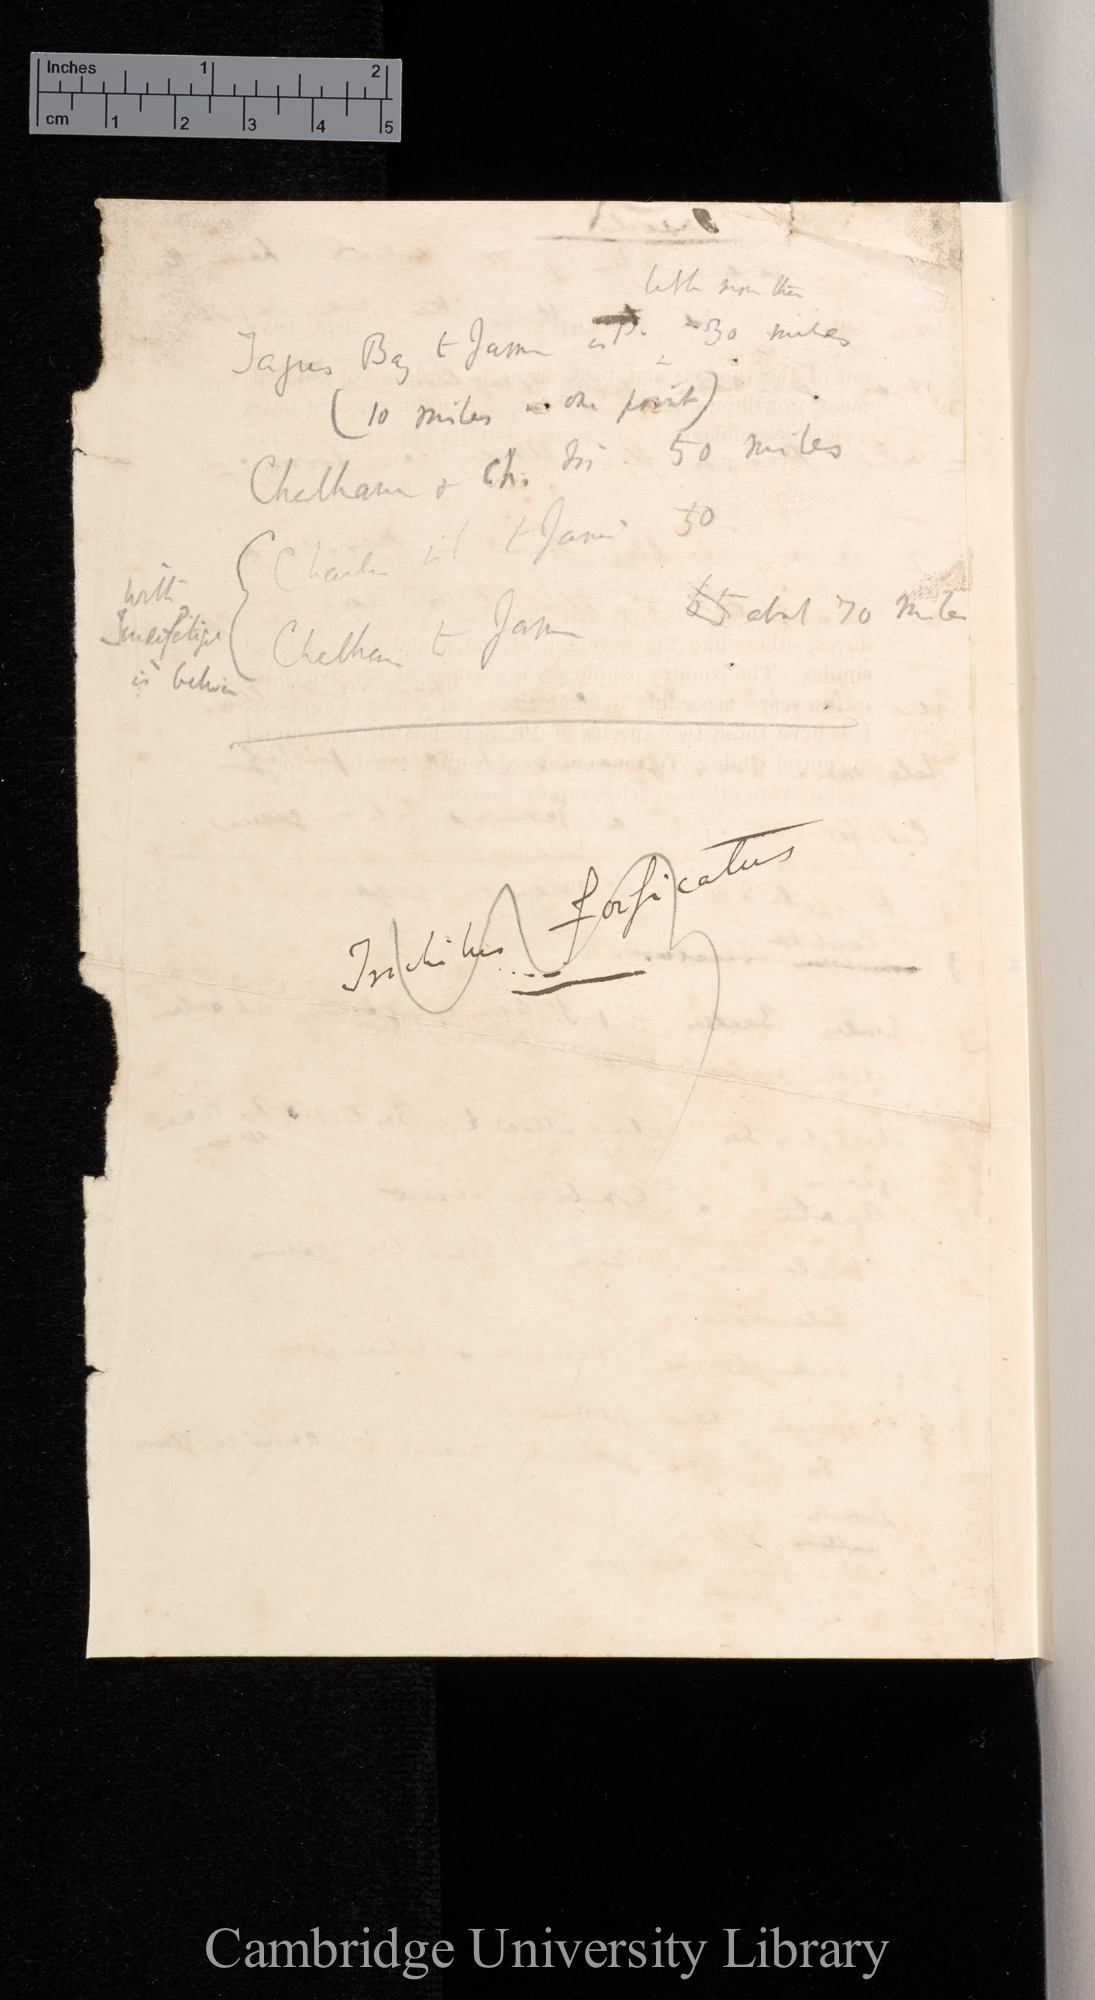 Inches 1 2
cm 1 2 3 4 5
little more than
Tagus Bay to James is 30 miles
(10 miles one point)
Chatham & Ch. Isl. 50 miles
Charles isl to James 50
Chatham to James 65 about 70 miles
with
Indefatiga
is between
Trichilus forficatus
Cambridge University Library